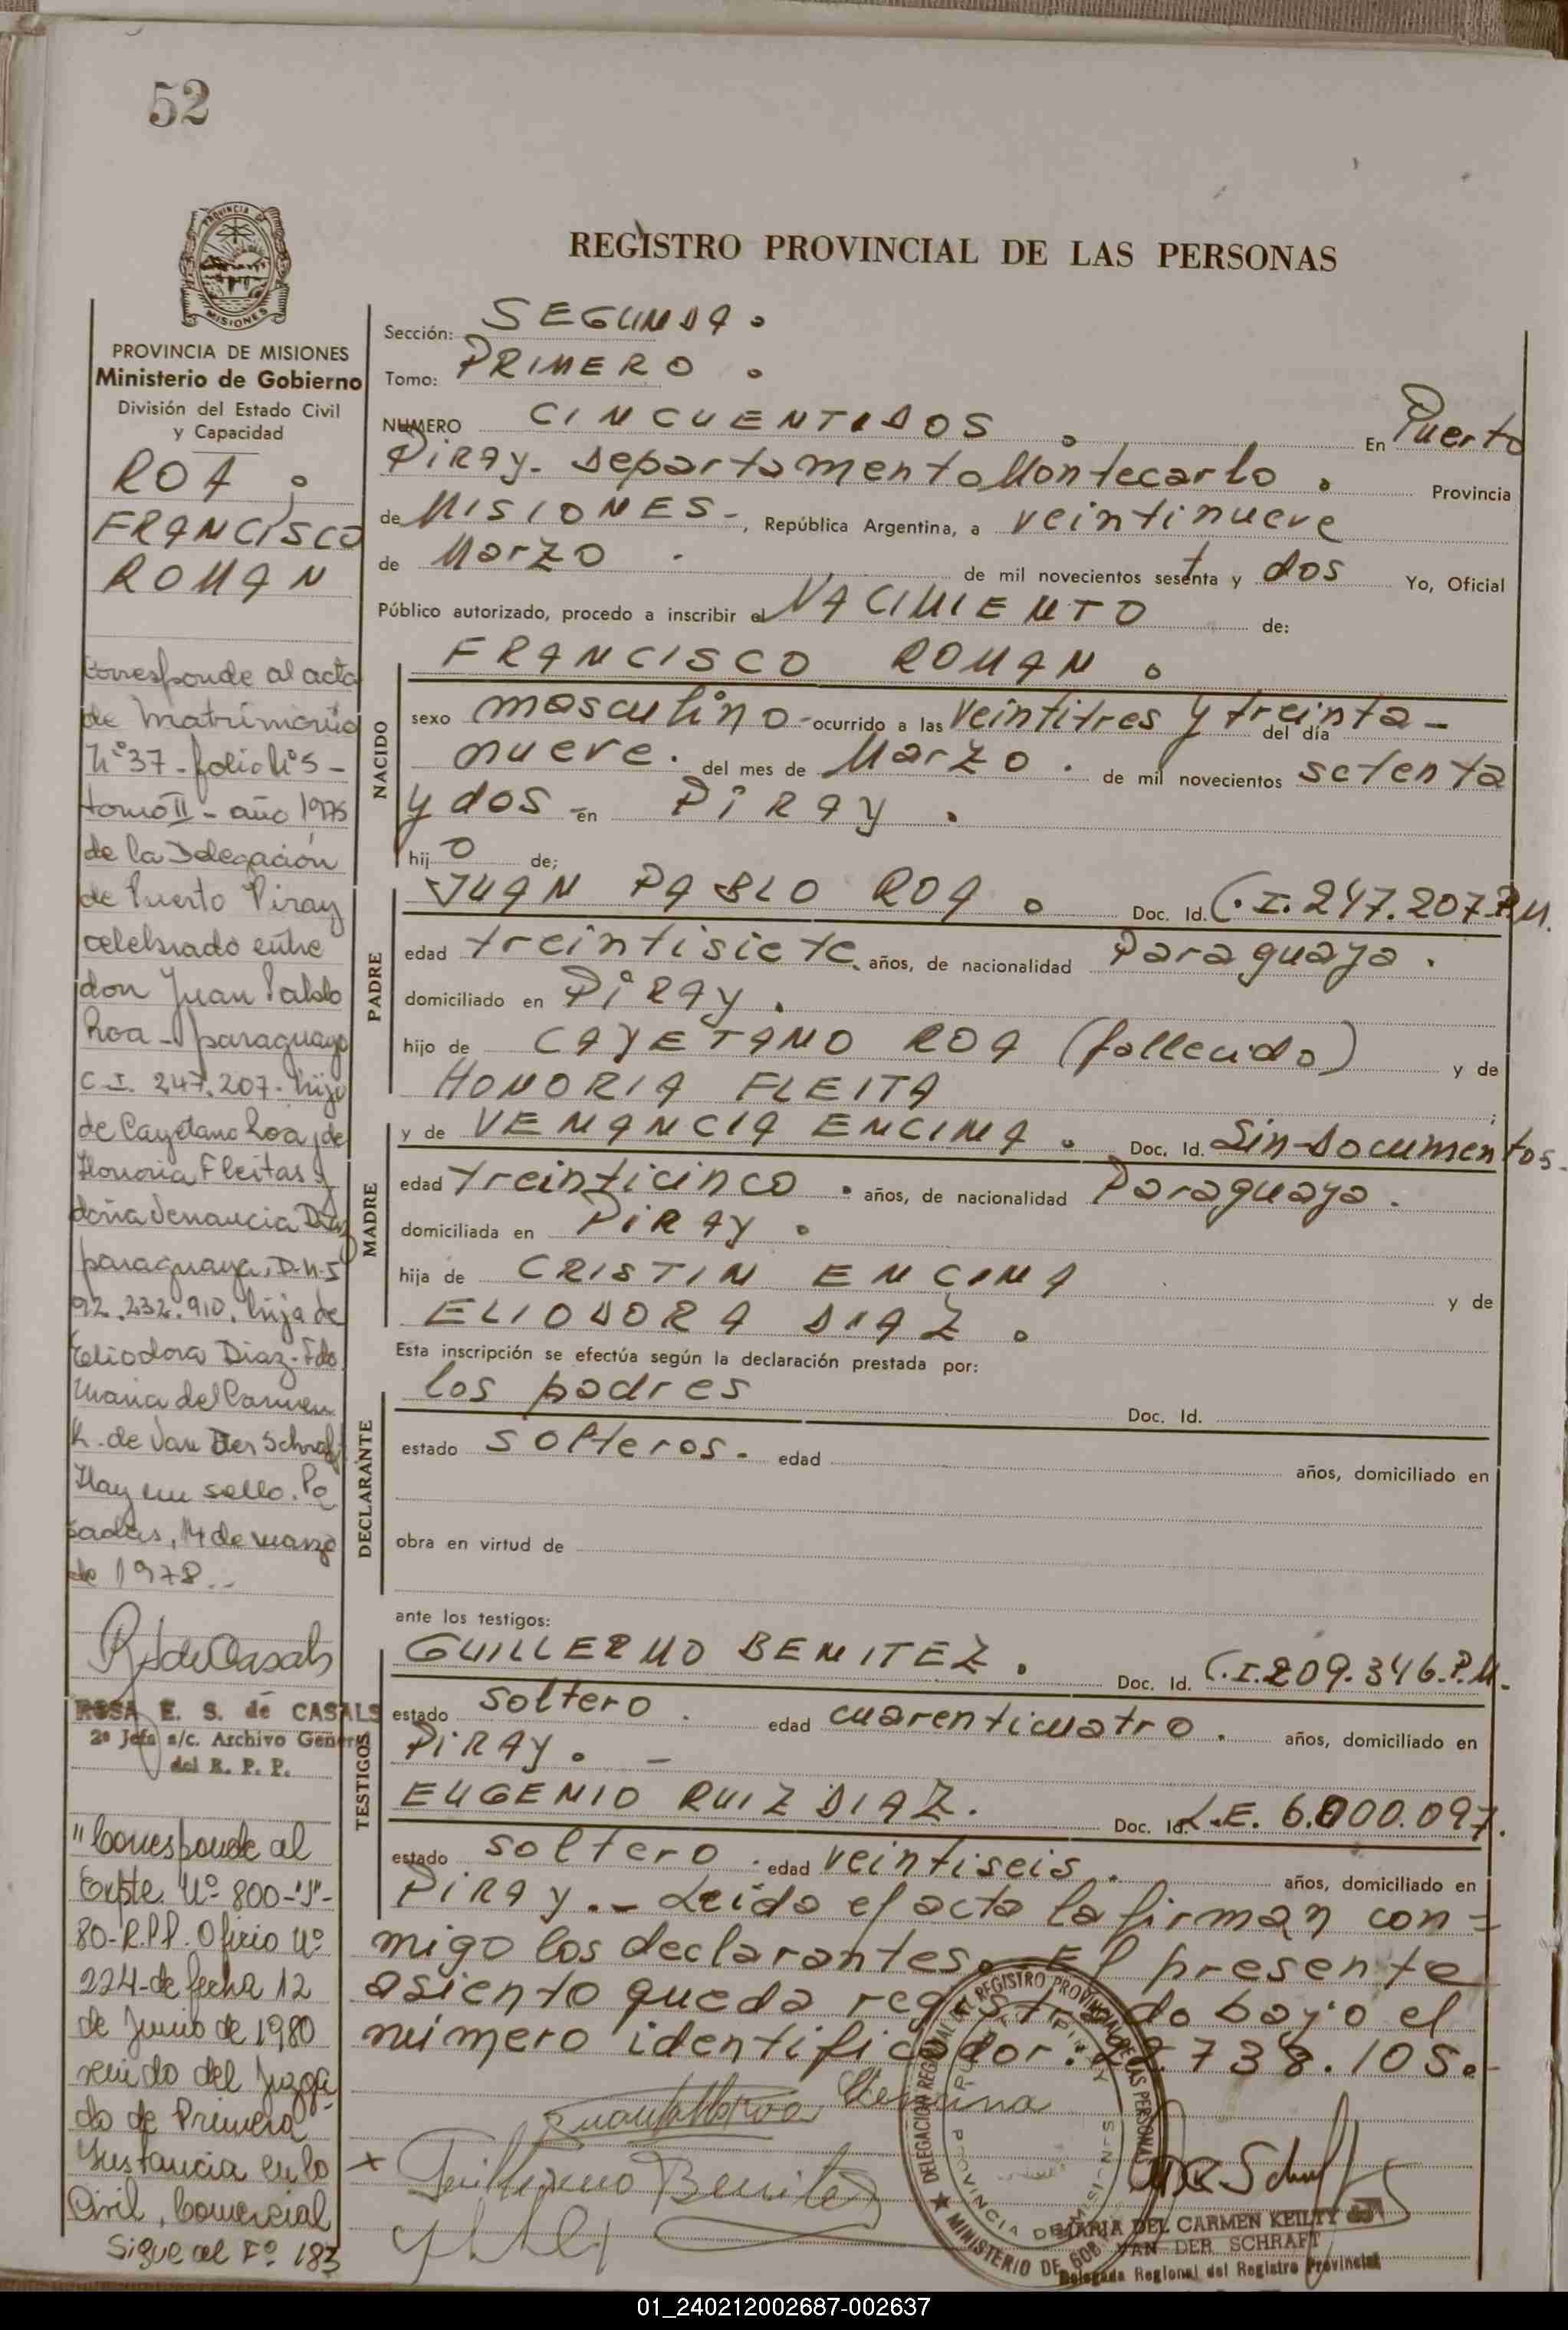 52
PROVINCIA DE MISIONES
Ministerio de Gobierno
División del Estado Civil
y Capacidad
ROA
FRANCISCO
ROMAN
Corresponde al acta
de matrimonio
Nº37-folio Nº5-
tomo II - año 1975
de la Delegación
de Puerto Piray
celebrado entre
don Juan Pablo
Roa - paraguayo
C.I. 247.207- hijo
de Cayetano Roa y de
Honoria Fleitas y
doña Venancia Diaz
paraguaya, D.N.I
92.232.910. hija de
Eliodora Diaz-Fdo
Maria del Carmen
K. de Van Der Schraft
Hay un sello. Po
sadas, 14 de marzo
de 1978..
ROSA E. S. de CASALS
2º Jefa a/c. Archivo General
del R. P. P.
"Corresponde al
Expte Nº 800-"J"-
80-R.P.P. Oficio Nº
224-de fecha 12
de Junio de 1980
venido del Juzga
do de Primera
Instancia en lo
Civil, Comercial
Sigue al Fº 183
REGISTRO PROVINCIAL DE LAS PERSONAS
Sección: SEGUNDA.
Tomo: PRIMERO.
NUMERO CINCUENTIDOS. En Puerto
Piray- Departamento Montecarlo. Provincia
de MISIONES-, República Argentina, a veintinueve
de Marzo. de mil novecientos sesenta y dos Yo, Oficial
Público autorizado, procedo a inscribir el NACIMIENTO de:
FRANCISCO ROMAN.
NACIDO
sexo masculino- ocurrido a las veintitres y treinta- del día
nueve. del mes de Marzo. de mil novecientos setenta
y dos en PIRAY.
hijo de;
PADRE
JUAN PABLO ROA. Doc. Id. C.I. 247.207 P.M.
edad treintisiete años, de nacionalidad Paraguaya.
domiciliado en PIRAY.
hijo de CAYETANO ROA (fallecido) y de
HONORIA FLEITA ;
MADRE
y de VENANCIA ENCINA. Doc. Id. Sin-Documentos-
edad treinticinco. años, de nacionalidad Paraguaya.
domiciliada en PIRAY.
hija de CRISTIN ENCINA y de
ELIODORA DIAZ.
Esta inscripción se efectúa según la declaración prestada por:
DECLARANTE
los padres Doc. Id.
estado solteros. edad años, domiciliado en
obra en virtud de
ante los testigos:
TESTIGOS
GUILLERMO BENITEZ. Doc. Id. C.I. 209.346-P.M.
estado soltero. edad cuarenticuatro. años, domiciliado en
PIRAY. -
EUGENIO RUIZ DIAZ. Doc. Id. L.E. 6.000.097.
estado soltero. edad veintiseis. años, domiciliado en
PIRAY.- Leida el acta la firman con-
migo los declarantes. El presente
asiento queda registrado bajo el
número identificador: 22.738.105.-
Juan Pablo Roa Venancia
Guillermo Benitez
DELEGACION REGIONAL DEL REGISTRO PROVINCIAL DE LAS PERSONAS
MINISTERIO DE GOB
PROVINCIA DE MISIONES
MARIA DEL CARMEN KEILTY de
VAN DER SCHRAFT
Delegada Regional del Registro Provincial
01_240212002687-002637